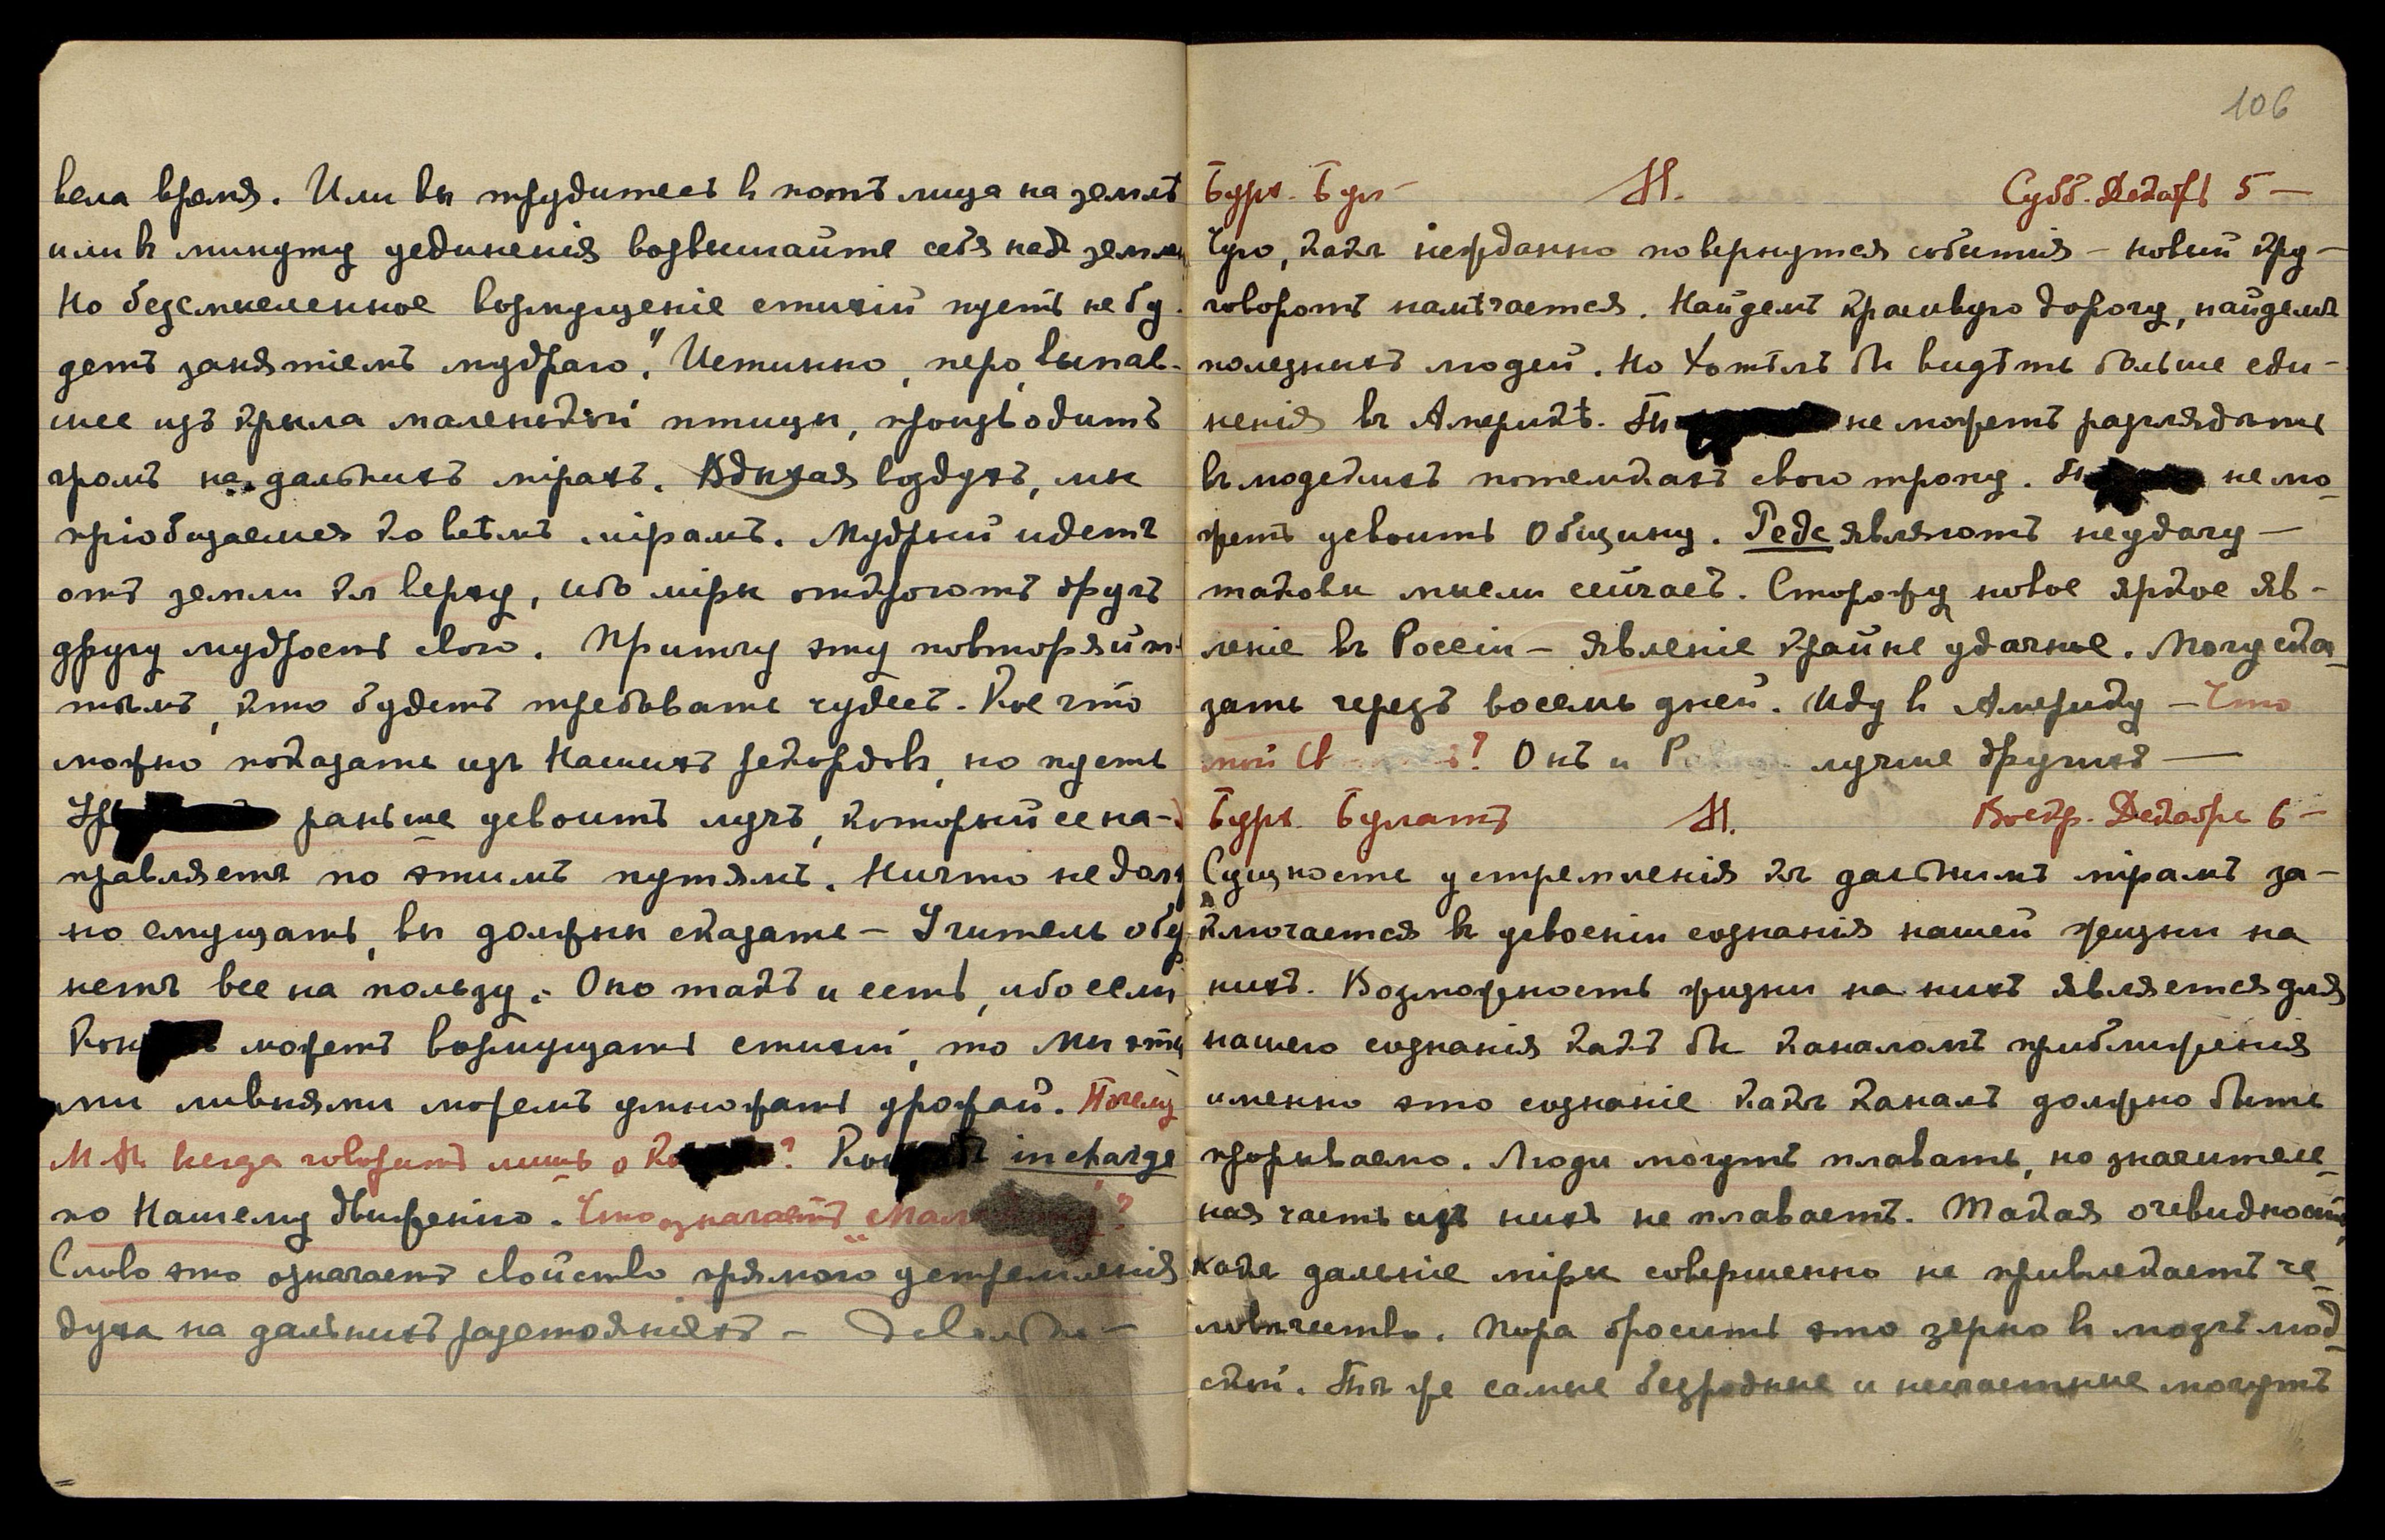 вела время. Или вы трудитесь в потѣ лица на землѣ
или в минуту уединенія возвышайте себя над землею
Но безсмысленное возмущеніе стихій пусть не бу-
детъ занятіемъ мудраго." Истинно, перо, выпав-
шее изъ крыла маленькой птицы, производитъ
громъ на дальнихъ мірахъ. Вдыхая воздухъ, мы
пріобщаемся ко всѣмъ мірамъ. Мудрый идетъ
отъ земли къ верху, ибо міры откроютъ другъ
другу мудрость свою. Притчу эту повторяйте
тѣмъ, кто будетъ требовать чудесъ. Кое что
можно показать изъ Нашихъ рекордовъ, но пусть
раньше усвоитъ лучъ, который ее на-
правляетъ по этимъ путямъ. Ничто не долж
но смущать, вы должны сказать – Учитель обер
нетъ все на пользу. Оно такъ и есть, ибо если
можетъ возмущать стихіи, то Мы эти
ми ливнями можемъ умножать урожай. Почему
М. М. всегда говоритъ лишь о ? in charge
по Нашему движенію. Что означаетъ ?
Слово это означаетъ свойство прямого устремленія
духа на дальнихъ разстояніяхъ – довольно –
106
Бурн. Бул – М. Субб. Декабрь 5 –
Чую, какъ нежданно повернутся событія – новый кру-
говоротъ намѣчается. Найдемъ красивую дорогу, найдемъ
полезныхъ людей. Но хотѣлъ бы видѣть больше еди-
ненія въ Америкѣ. не можетъ разглядѣть
въ людскихъ потемкахъ свою тропу. не мо-
жетъ усвоить Общину. Редс являютъ неудачу –
таковы мысли сейчасъ. Сторожу новое яркое яв-
леніе въ Россіи – явленіе крайне удачное. Могу ска-
зать черезъ восемь дней. Иду в Америку – Что
мой Св ? Онъ и лучше другихъ –
Бурн. Булатъ М. Воскр. Декабрь 6 –
Сущность устремленія къ дальнимъ мірамъ за-
ключается в усвоеніи сознанія нашей жизни на
нихъ. Возможность жизни на нихъ является для
нашего сознанія какъ бы каналомъ приближенія
именно это сознаніе какъ каналъ должно быть
прорываемо. Люди могутъ плавать, но значитель-
ная часть изъ нихъ не плаваетъ. Такая очевидность,
какъ дальніе міры совершенно не привлекаетъ че-
ловѣчество. Пора бросить это зерно в мозгъ люд-
ской. Тѣ же самые безродные и несчастные могутъ